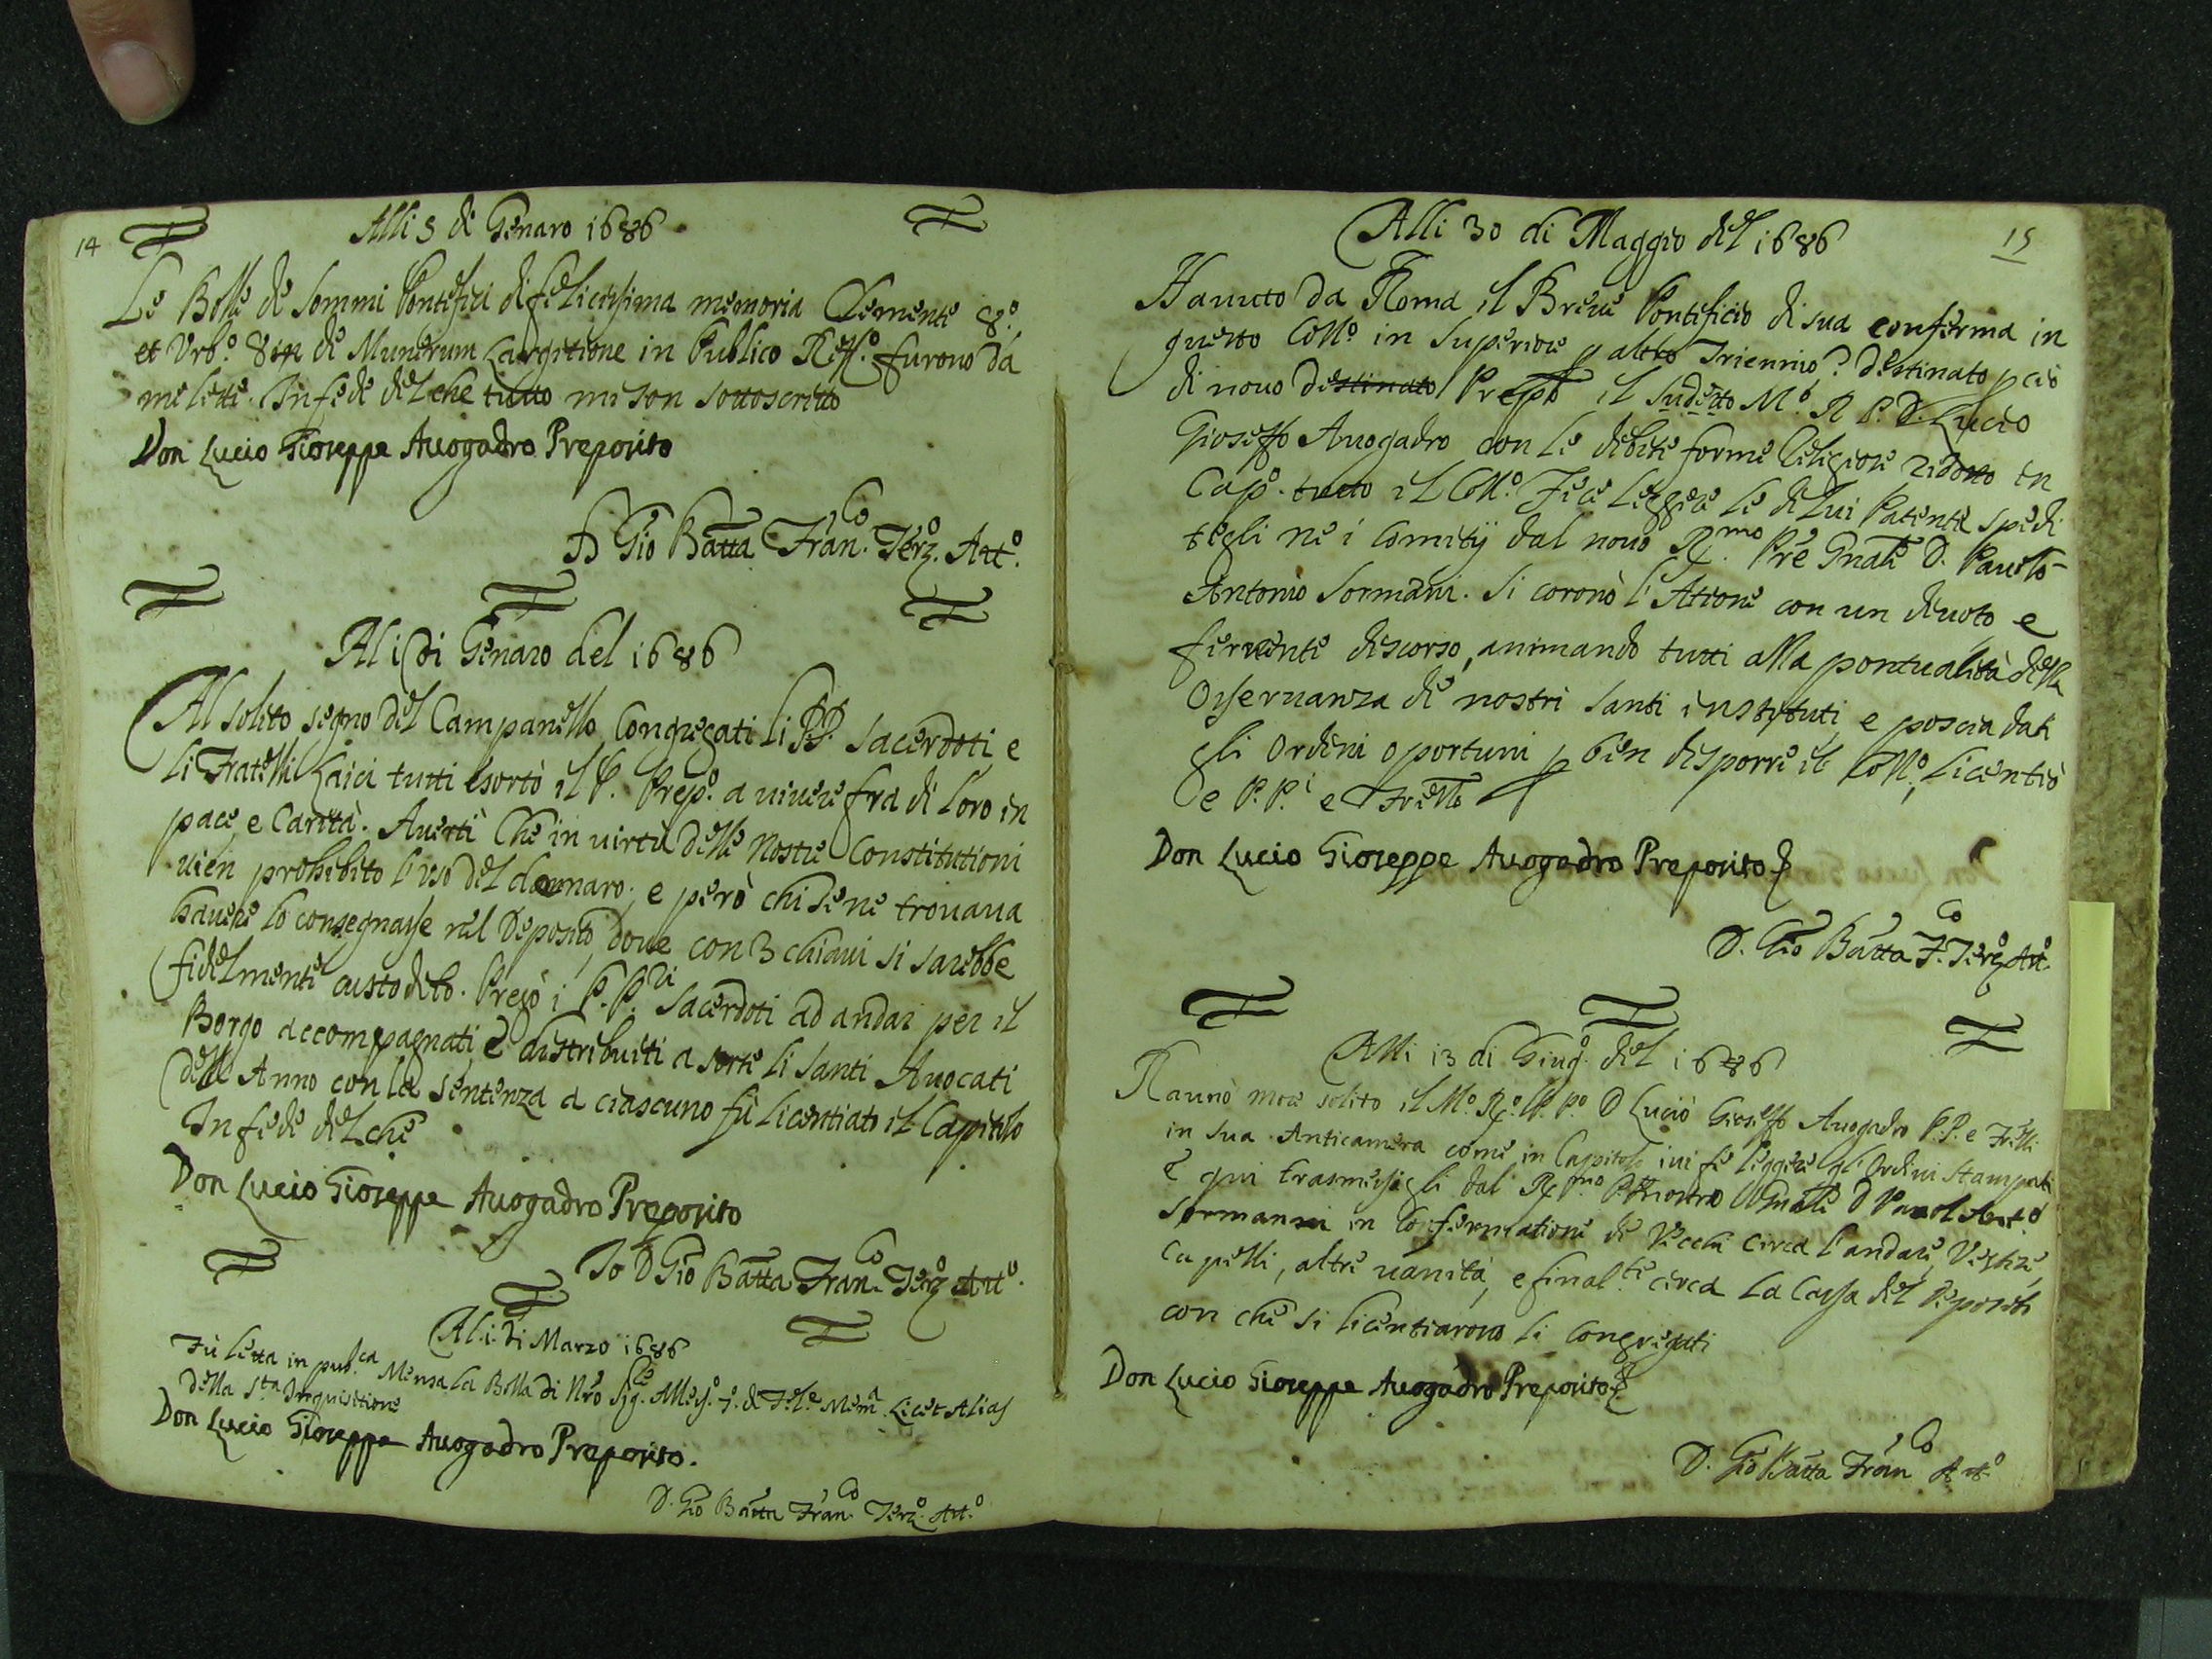 14
Alli 5 di Genaro 1686
Le Bolle de Sommi Pontefici di felicissima memoria Clemente 8.º
et Urb.º 8vo de Munerum Largitione in Publico Reff.º furono da
me lette. In fede del che tutto mi son sottoscritto
Don Lucio Gioseppe Auogadro Preposito
D Gio Batta Fran.co Terz.º Att.º
Al i di Genaro del 1686
Al solito segno del Campanello Congregati li PP. Sacerdoti e
li Fratelli Laici tutti esortò il P. Prep.º a uiuere fra di loro in
pace, e Carità. Auertì che in uirtù delle Nostre Constitutioni
uien prohibito l'uso del dennaro; e però chi se ne trouaua
hauere lo consegnasse nel Deposito, doue con 3 chiaui si sarebbe
fidelmente custodito. Pregò i P.P.ri Sacerdoti ad andar per il
Borgo accompagnati e distribuiti a sorte li Santi Auocati
dell Anno con la sentenza a ciascuno fù licentiato il Capitolo
In fede del che
Don Lucio Gioseppe Auogadro Preposito
Io D Gio Batta Fran.co Terz.º Att.º
Al .i. di Marzo 1686
Fù letta in pub.ca Mensa la Bolla di Nro Sig.re Aless.º 7.º di Fel.e Mem.a Licet Alias
della S.ta Inquisitione
Don Lucio Gioseppe Auogadro Preposito.
D. Gio Batta Fran.co Terz.º Att.º
15
Alli 30 di Maggio del 1686
Hauuto da Roma il Breue Pontificio di sua conferma in
questo Coll.º in Superiore p altro Triennio? Destinato p ciò
di nouo destinato Prepto il sudetto M.º R P. D. Lucio
Gioseffo Auogadro con le debite forme Religiose ridotto in
Cap.º tutto il Coll.º Fece leggere le di lui Patente spedi
tegli ne i Comitij dal nouo R.mo Pre Gnale D. Paulo-
Antonio Sormani. Si coronò l'Attione con un diuoto e
feruente discorso, animando tutti alla pontualità della
Osseruanza de nostri Santi instituti, e poscia dati
gli Ordini oportuni p ben disporre il Coll.º, licentiò
e P.P.i e Frelli
Don Lucio Gioseppe Auogadro Preposito
D. Gio Batta F.co Terz.º Att.º
Alli 13 di Giug.º del 1686
Raunò more solito il M.º R.º P. P.º D Lucio Gioseffo Auogadro P.P. e Frelli
in sua Anticamera come in Capitolo iui fe leggere gli Ordini Stampati
e qui trasmessigli dal R.mo P. Nostro Gnale D Paol Ant.º
Sormanni in Confermatione de Vecchi circa l'andare, Vestire,
Capelli, altre uanità, e final.te circa la Cassa del Deposito
con che si licentiarono li Congregati
Don Lucio Gioseppe Auogadro Preposito
D. Gio Batta Fran.co Att.º